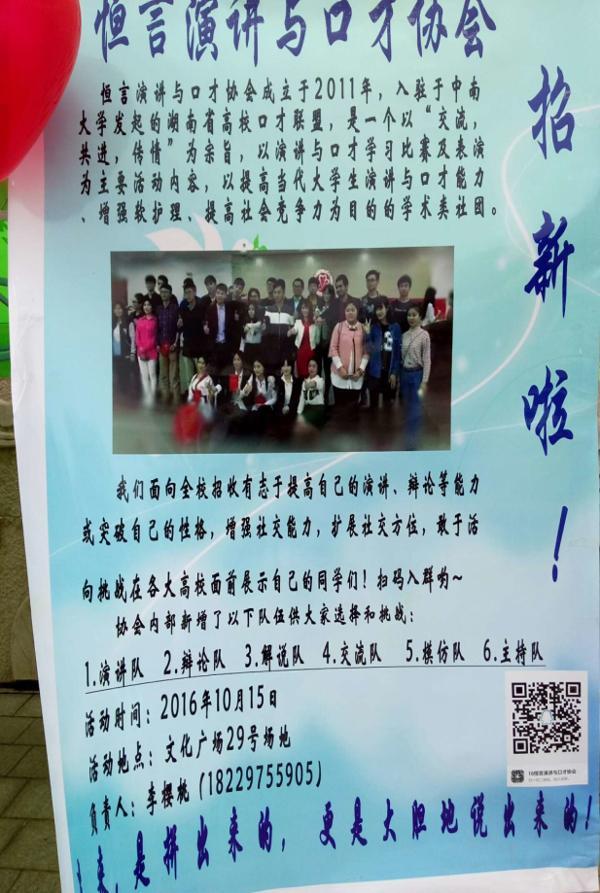 恒言演讲与口才协会
招新啦！
恒言演讲与口才协会成立于2011年，入驻于中南
大学发起的湖南省高校口才联盟，是一个以“交流，
共进，传情”为宗旨，以演讲与口才学习比赛及表演
为主要活动内容，以提高当代大学生演讲与口才能力
、增强软护理、提高社会竞争力为目的的学术类社团。
我们面向全校招收有志于提高自己的演讲、辩论等能力
或突破自己的性格，增强社交能力，扩展社交方位，敢于活
向挑战在各大高校面前展示自己的同学们！扫码入群哟~
协会内部新增了以下队伍供大家选择和挑战：
1.演讲队 2.辩论队 3.解说队 4.交流队 5.模仿队 6.主持队
活动时间：2016年10月15日
活动地点：文化广场29号场地
负责人：李樱桃（18229755905）
16恒言演讲与口才协会
来，是拼出来的，更是大胆地说出来的！